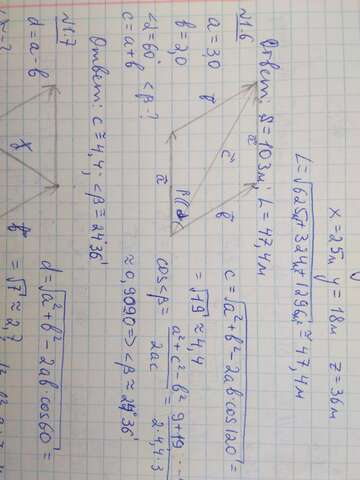 x = 25м y = 18м z = 36м
L = √625м + 324м + 1296м ≈ 47,4м
Ответ: S = 103м; L = 47,4м
№1.6
a = 3,0
b = 2,0
<α = 60°
c = a + b <β - ?
b
a
c
a
b
β
α
c = √a² + b² - 2ab cos120° =
= √19 ≈ 4,4
cos<β = a² + c² - b² / 2ac = 9 + 19 ... / 2·4,4·3
≈ 0,9090 => <β ≈ 24°36'
Ответ: c ≈ 4,4; <β ≈ 24°36'
№1.7
d = a - b
d = √a² + b² - 2ab·cos60° =
= √7 ≈ 2,7